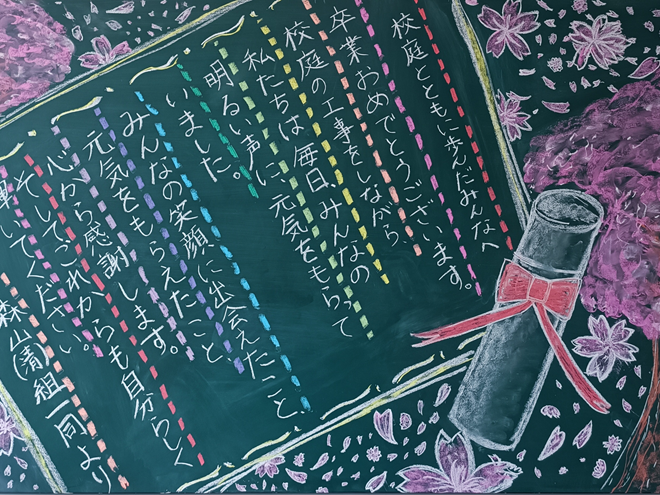 校庭とともに歩んだみんなへ
卒業おめでとうございます。
校庭の工事をしながら、
私たちは毎日、みんなの
明るい声に元気をもらって
いました。
みんなの笑顔に出会えたこと、
元気をもらえたこと
心から感謝します。
そしてこれからも自分らしく
輝いてください。
森山(清)組一同より